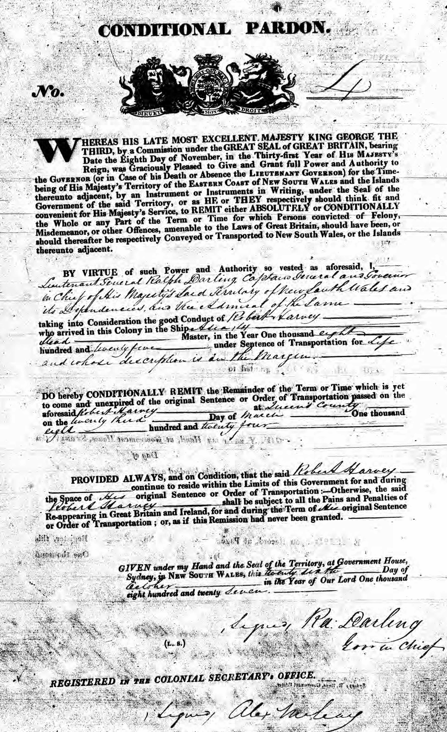 CONDITIONAL PARDON.
No. 4
DIEU ET DROIT
WHEREAS HIS LATE MOST EXCELLENT MAJESTY KING GEORGE THE
THIRD, by a Commission under the GREAT SEAL of GREAT BRITAIN, bearing
Date the Eighth Day of November, in the Thirty-first Year of HIS MAJESTY'S
Reign, was Graciously Pleased to Give and Grant full Power and Authority to
the GOVERNOR (or in Case of his Death or Absence the LIEUTENANT GOVERNOR) for the Time-
being of His Majesty's Territory of the EASTERN COAST of NEW SOUTH WALES and the Islands
thereunto adjacent, by an Instrument or Instruments in Writing, under the Seal of the
Government of the said Territory, or as HE or THEY respectively should think fit and
convenient for His Majesty's Service, to REMIT either ABSOLUTELY or CONDITIONALLY
the Whole or any Part of the Term or Time for which Persons convicted of Felony,
Misdemeanor, or other Offences, amenable to the Laws of Great Britain, should have been, or
should thereafter be respectively Conveyed or Transported to New South Wales, or the Islands
thereunto adjacent.
BY VIRTUE of such Power and Authority so vested as aforesaid, I,
Lieutenant General Ralph Darling Captain General and Governor
in Chief of His Majesty's Said Territory of New South Wales and
its Dependencies, and Vice Admiral of the Same
taking into Consideration the good Conduct of Robert Harvey
who arrived in this Colony in the Ship
Master, in the Year One thousand eight
hundred and twenty five under Sentence of Transportation for Life
and whose description is in the Margin
DO hereby CONDITIONALLY REMIT the Remainder of the Term or Time which is yet
to come and unexpired of the original Sentence or Order of Transportation passed on the
aforesaid Robert Harvey at County
on the twenty third Day of March One thousand
eight hundred and twenty four
PROVIDED ALWAYS, and on Condition, that the said Robert Harvey
continue to reside within the Limits of this Government for and during
the Space of His original Sentence or Order of Transportation:—Otherwise, the said
Robert Harvey shall be subject to all the Pains and Penalties of
Re-appearing in Great Britain and Ireland, for and during the Term of His original Sentence
or Order of Transportation; or, as if this Remission had never been granted.
GIVEN under my Hand and the Seal of the Territory, at Government House,
Sydney, in NEW SOUTH WALES, this twenty sixth Day of
October in the Year of Our Lord One thousand
eight hundred and twenty seven.
Signed, Ra: Darling
(L. S.) Gov: in Chief
REGISTERED IN THE COLONIAL SECRETARY'S OFFICE.
Signed, Alex McLeay